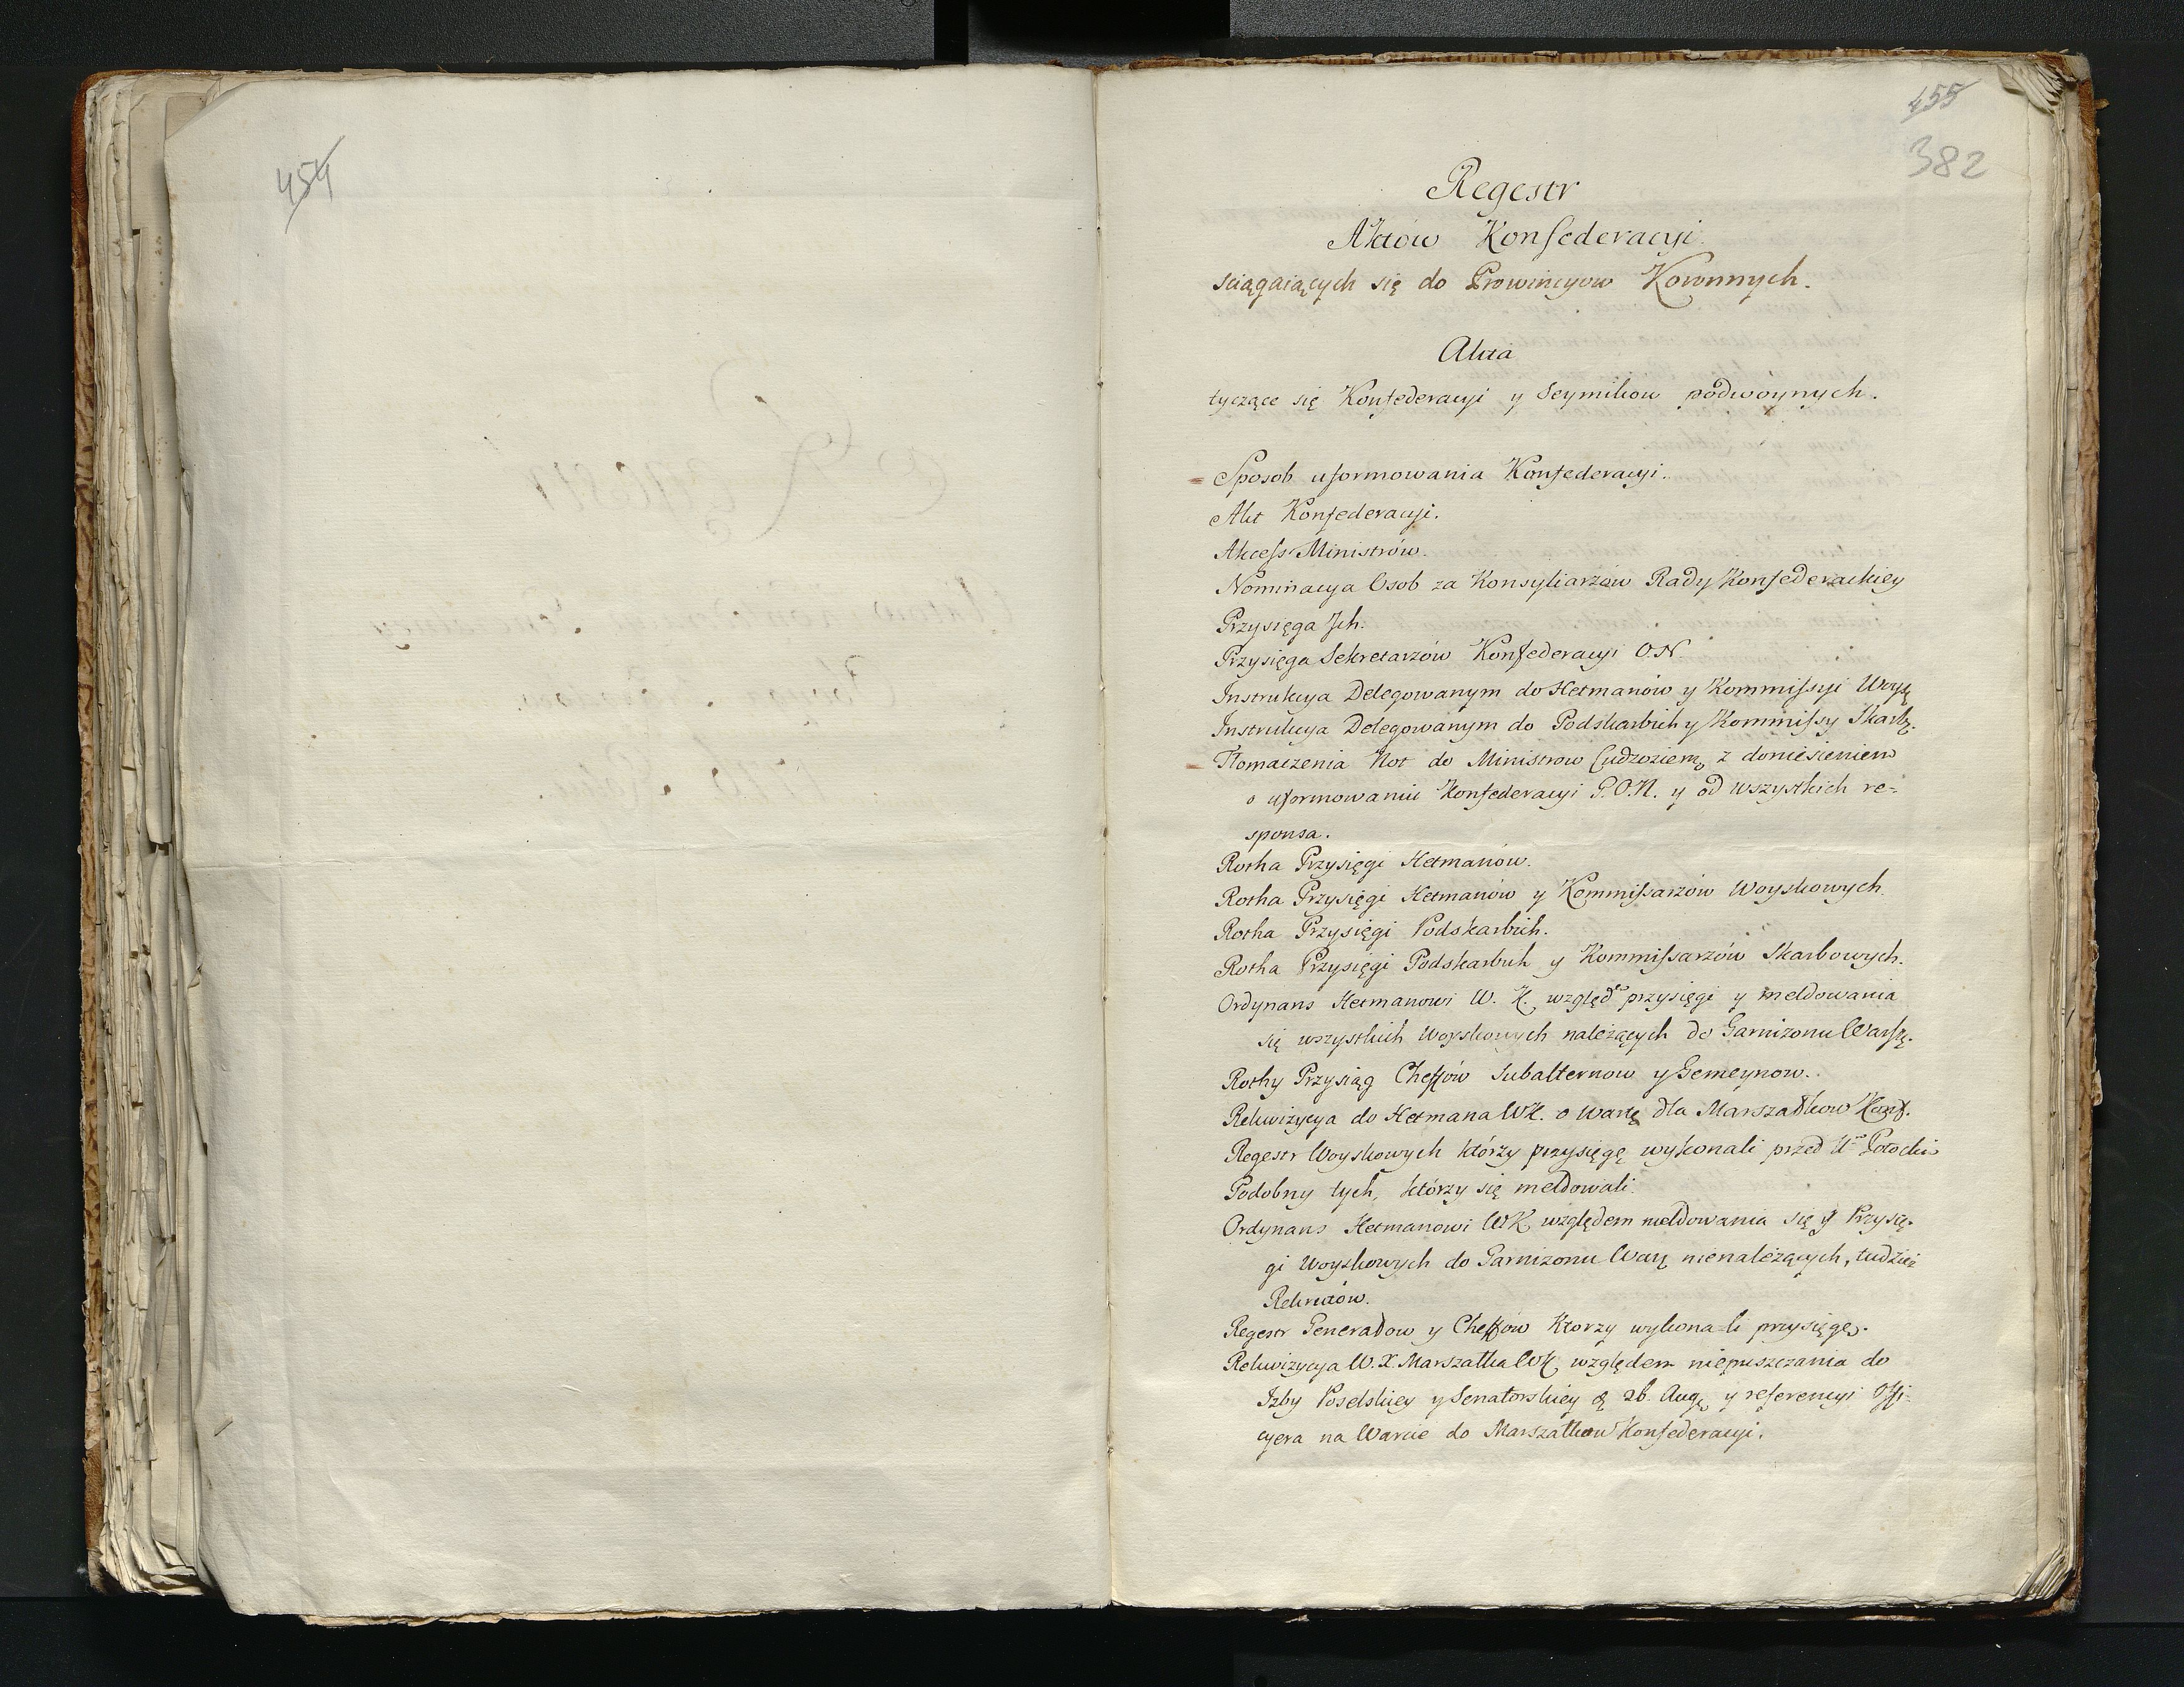 454
455
382
Regestr
Aktow Konfederacyi
sciągaiących się do Prowincyow Koronnych.
Akta
tyczące się Konfederacyi y Seymikow podwoynych.
Sposob uformowania Konfederacyi.
Akt Konfederacyi.
Akcess Ministrów.
Nominacya Osob za Konsyliarzów Rady Konfederackiey
Przysięga Ich.
Przysięga Sekretarzów Konfederacyi O.N.
Instrukcya Delegowanym do Hetmanów y Kommissyi Woys.
Instrukcya Delegowanym do Podskarbich y Kommissy Skarb.
Tłomaczenia Not do Ministrow Cudzoziem. z doniesieniem
o uformowaniu Konfederacyi G.O.N. y od wszystkich re=
sponsa.
Rotha Przysięgi Hetmanów.
Rotha Przysięgi Hetmanów y Kommissarzów Woyskowych
Rotha Przysięgi Podskarbich.
Rotha Przysięgi Podskarbich y Kommissarzów Skarbowych.
Ordynans Hetmanowi W. K. względ przysięgi y meldowania
się wszystkich Woyskowych należących do Garnizonu Warsz.
Rothy Przysiąg Cheffów Subalternow y Gemeynow.
Rekwizycya do Hetmana WK. o wartę dla Marszałkow Konf.
Regestr Woyskowych którzy przysięgę wykonali przed Ur Potockim
Podobny tych, którzy się meldowali.
Ordynans Hetmanowi WK względem meldowania się y Przysię=
gi Woyskowych do Garnizonu War. nienależących, tudzież
Rekrutów.
Regestr Generałow y Cheffow Ktorzy wykonali przysięgę.
Rekwizycya W. X. Marszałka WK względem niepuszczania do
Izby Poselskiey y Senatorskiey 26. Aug. y referencyi Offi=
cyera na Warcie do Marszałkow Konfederacyi.